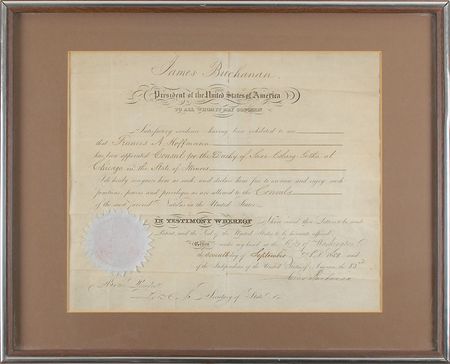 James Buchanan
President of the United States of America
TO ALL WHOM IT MAY CONCERN
Satisfactory evidence having been exhibited to me
that Francis A. Hoffmann
has been appointed Consul for the Duchy of Saxe Coburg Gotha, at
Chicago in the State of Illinois
I do hereby recognize him as such, and declare him free to exercise and enjoy such
functions, powers and privileges as are allowed to the Consuls
of the most favored Nations in the United States.
IN TESTIMONY WHEREOF I have caused these Letters to be made
Patent, and the Seal of the United States to be hereunto affixed.
Given under my hand at the City of Washington
the day of September A.D. 1858 and
of the Independence of the United States of America, the 83rd
James Buchanan
By the President
Secretary of State